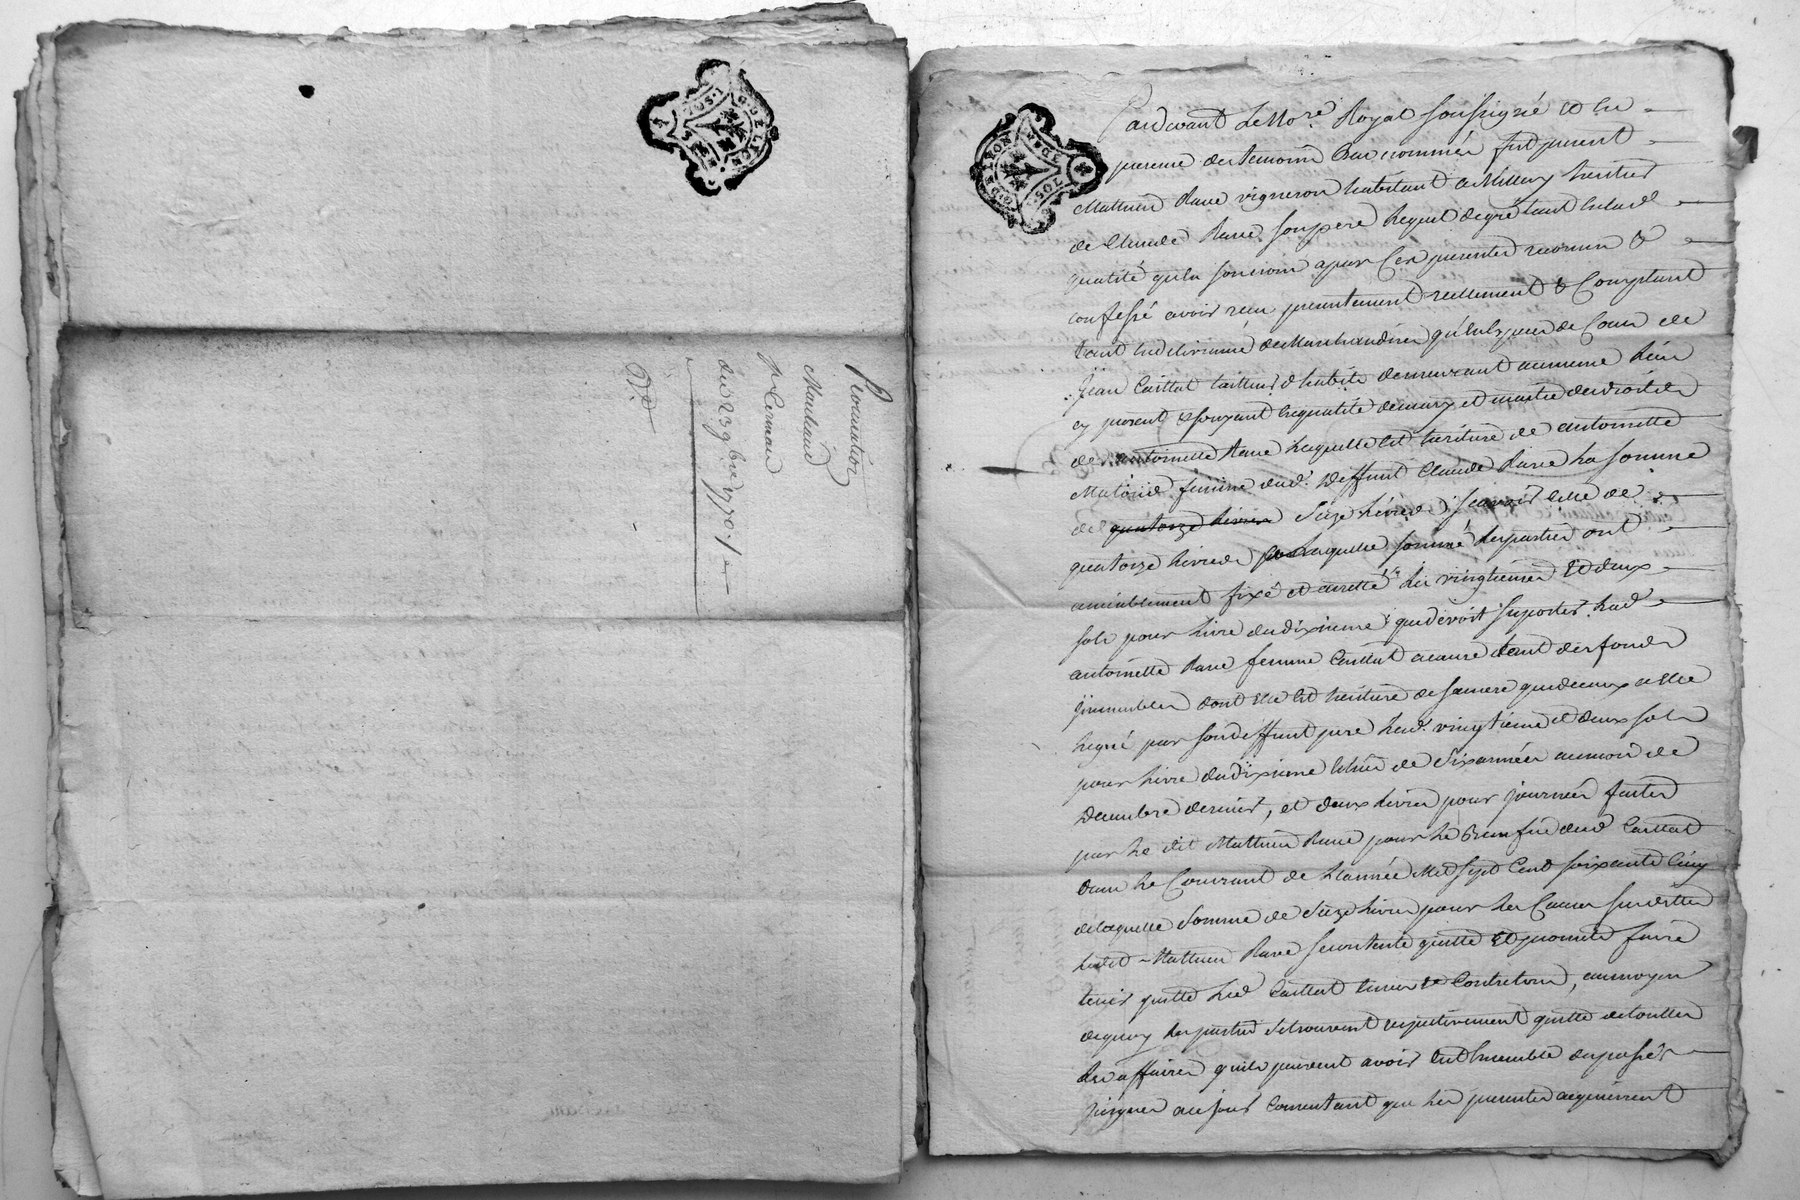 Procuration
Du 23 9bre 1770
Pardevant Le No.re Royal soussigné et En
presence des temoins bas nommés fut present
Mathieu Rave vigneron habitant a Millery heritier
de Claude Rave son pere lequel de gré tant en lad
qualité qu'en son nom a par ces presentes reconnu &
confessé avoir reçu presentement reellement & Comptant
tant en delivrance de Marchandises qu'En de Cours de
Jean Caillat tailleur d'habits demeurant au meme lieu
cy present & payant en qualité de mary et maitre des droits
de antoinette Rave laquelle Est heritiere de antoinette
femme dud. Deffunt Claude Rave La somme
de quatorze livres Seize livres sçavoir celle de
quatorze livres a laquelle somme les parties ont
amiablement fixé et arretté les vingtiemes Et deux
sols pour livre du dixieme que devoit suporter lad
antoinette Rave femme Caillat a cause tant des fonds
immeubles dont elle Est heritiere de sa mere que de ceux a Elle
legué par son deffunt pere lesd. vingtieme et deux sols
pour livre du dixieme Echus de six années au mois de
Decembre dernier, et deux livres pour journées faites
par le dit Mathieu Rave pour le Benefice dud Caillat
dans le Courant de L'année Mil sept Cent soixante Cinq
de laquelle Somme de Seize livres pour les Causes susdittes
ledit Mathieu Rave se contente quitte Et promet faire
tenir quitte led Caillat Envers & Contre tous, au moyen
de quoy les parties se trouvent respectivement quitte de touttes
les affaires qu'ils peuvent avoir Eut Ensemble du passé
jusques a ce jour Consentant que les presentes